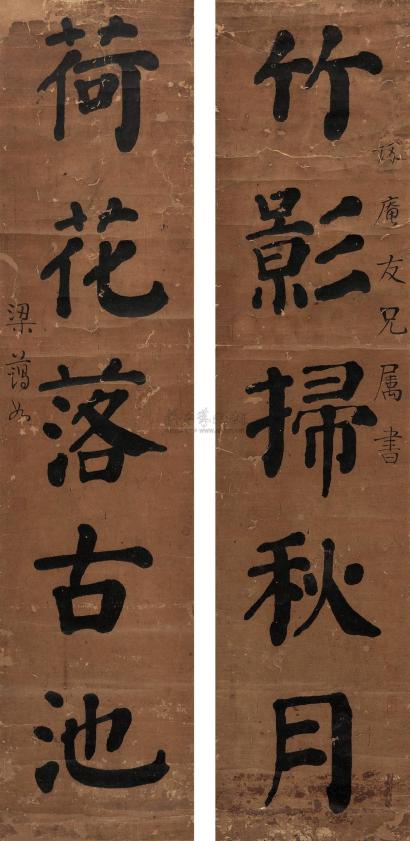 竹影掃秋月
庵友兄属書
荷花落古池
梁藹如